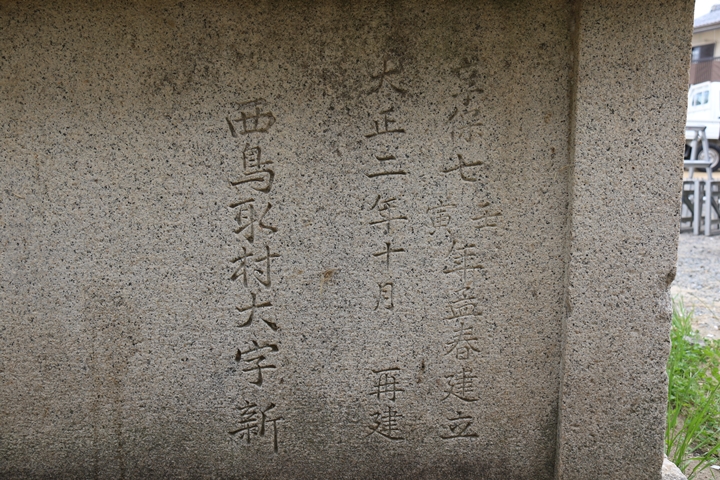 享保七壬寅年孟春建立
大正二年十月 再建
西鳥取村大字新